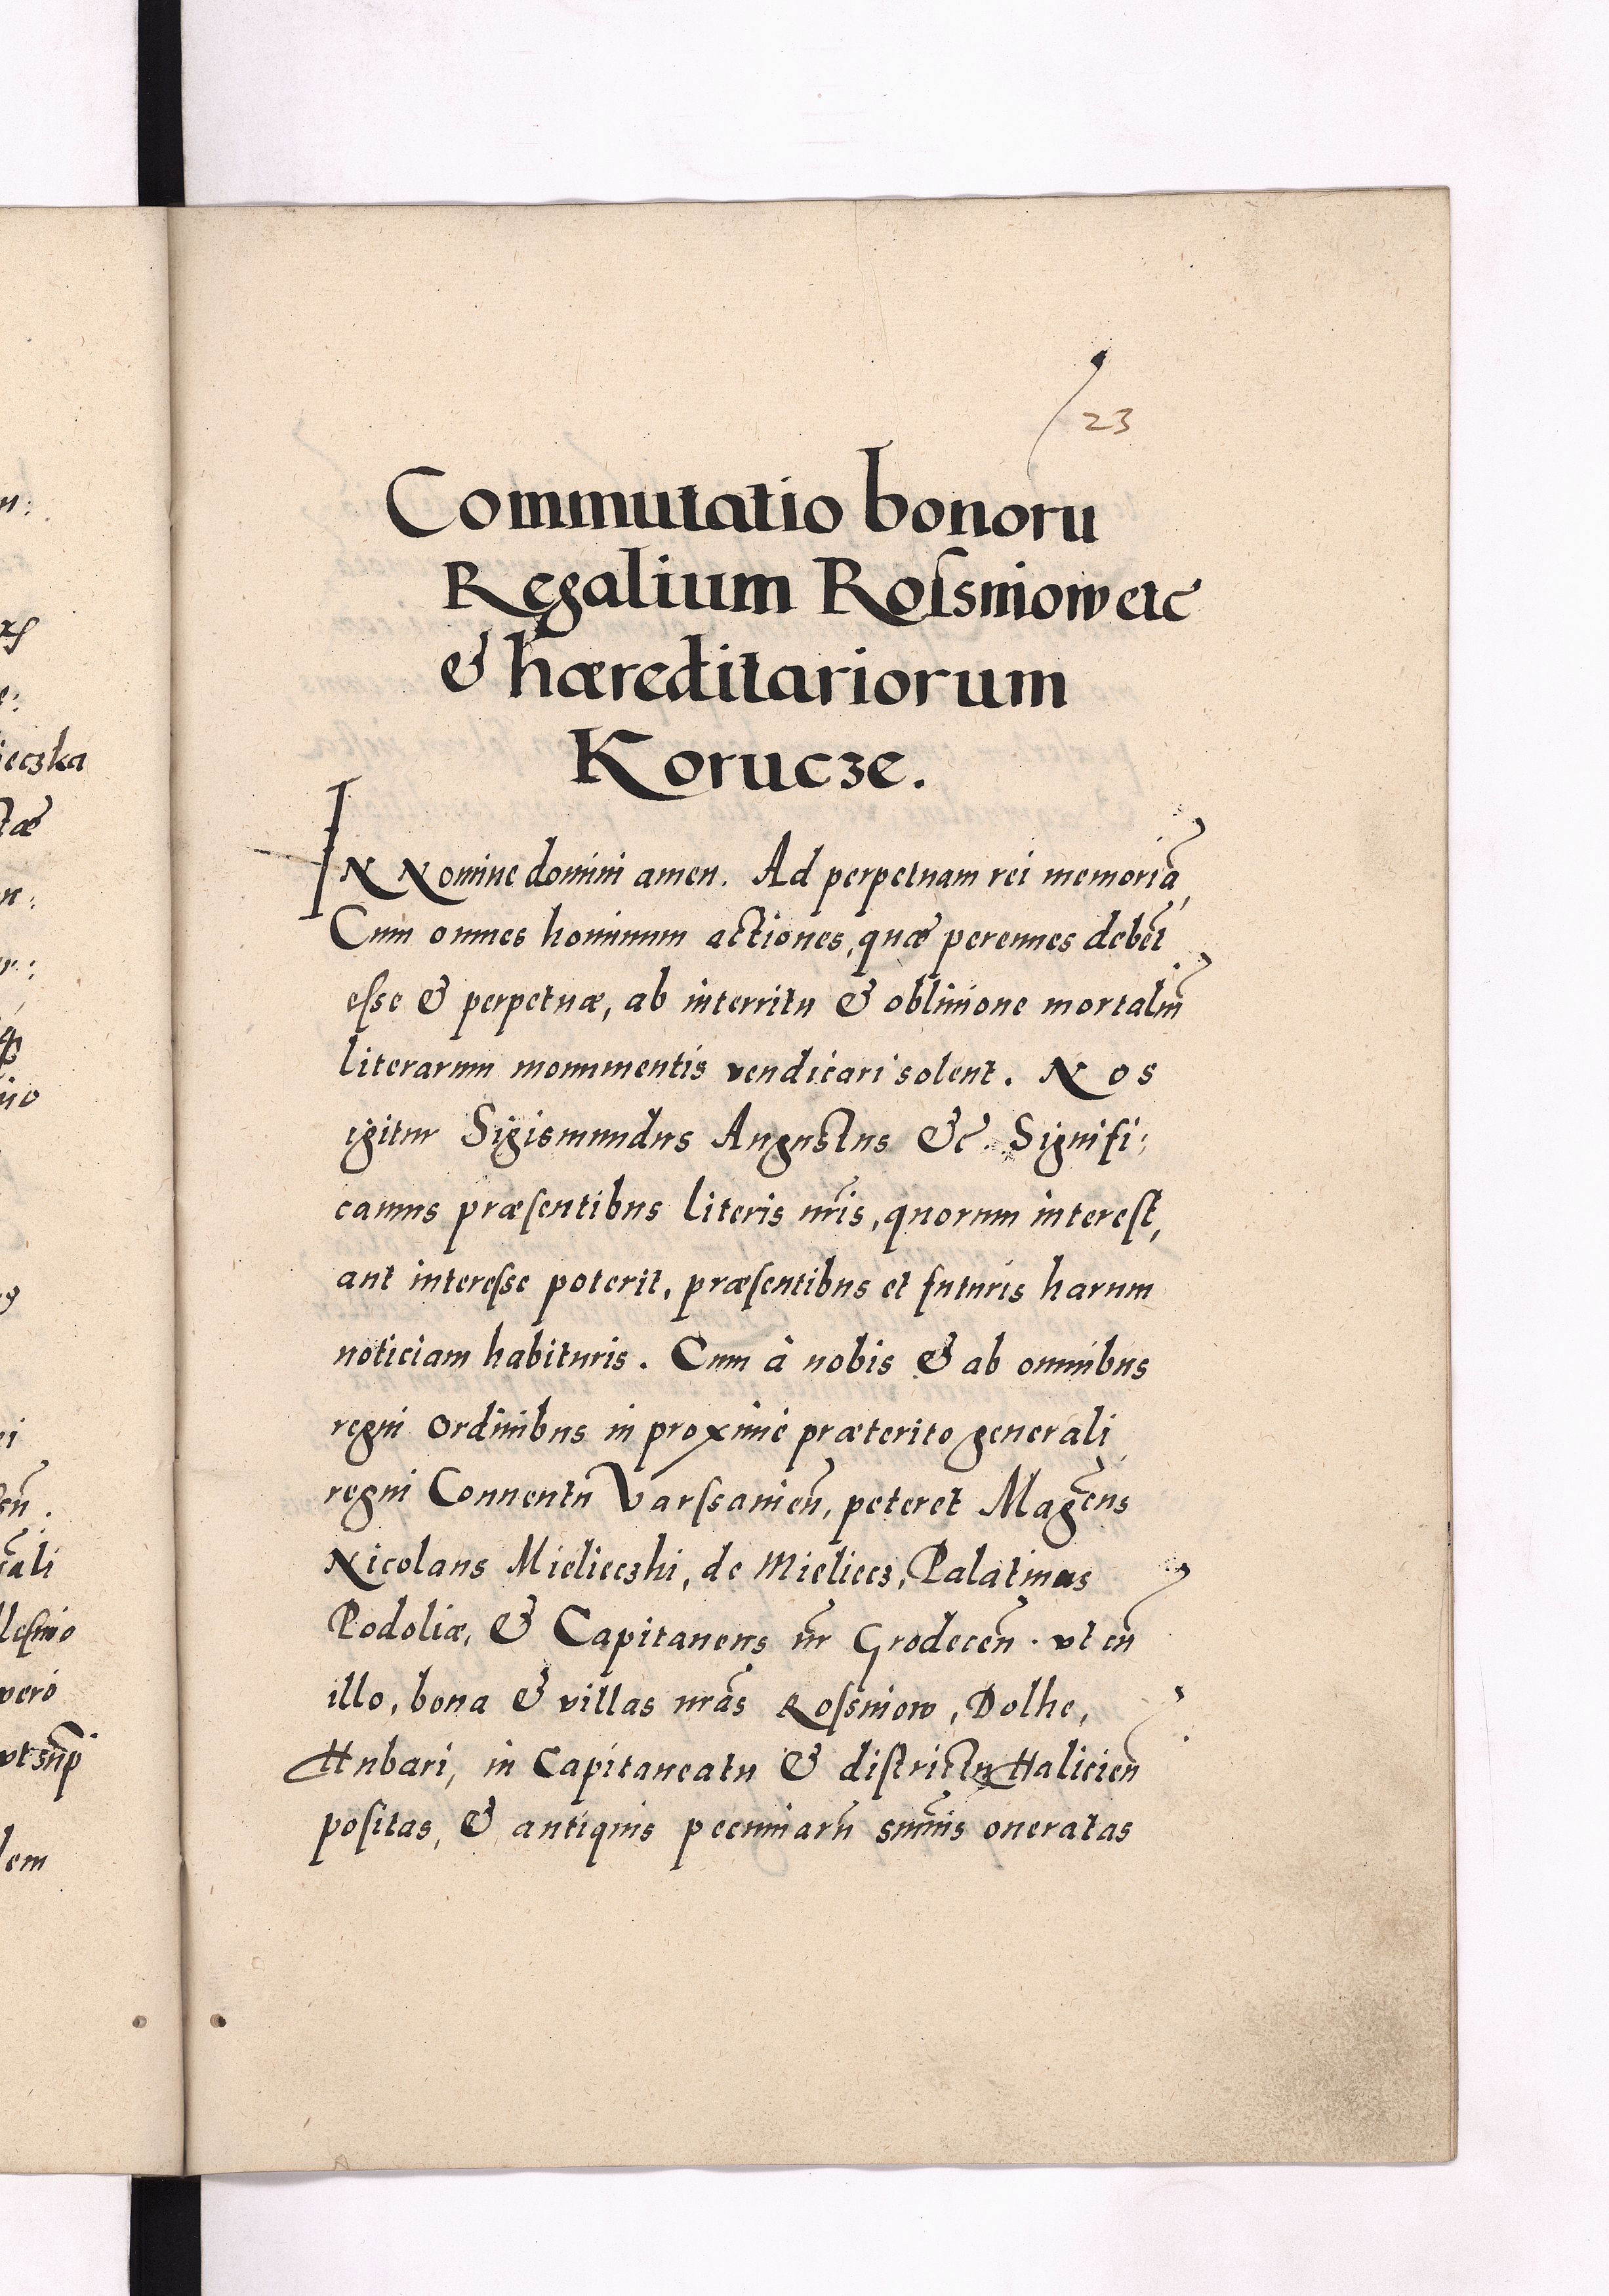 23
Commutatio bonorū
Regalium Roſsniow etc
& hæreditariorum
Korucze.
IN Nomine domini amen. Ad perpetuam rei memoriā,
Cum omnes hominum actiones, quæ perennes debēt
eſse & perpetuæ, ab interritu & obliuione mortaliū
literarum monumentis vendicari solent. Nos
igitur Sigismundus Augustus &c. Signifi:
camus præſentibus literis nr̄is, quorum intereſt,
aut intereſse poterit, præſentibus et futuris harum
noticiam habituris. Cum à nobis & ab omnibus
regni ordinibus in proximè præterito generali
regni Conuentu Varſsauieñ, peteret Magcūs
Nicolaus Mielieczki, de Mieliecz, Palatinus
Podoliæ, & Capitaneus nr̄ Grodeceñ. vt cū
illo, bona & villas nr̄as Roſsniow, Dolhe,
Hubari, in Capitaneatu & diſtrictu Halicieñ
poſitas, & antiquis pecuniarū sum̄is oneratas
ieczka
tæ
uo
vero
lem